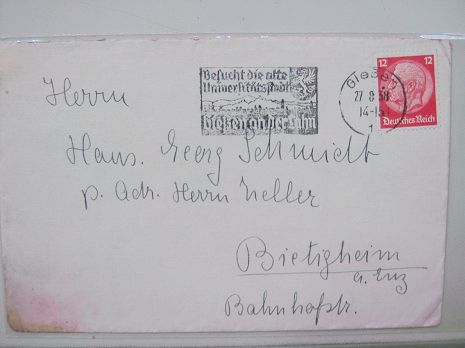 Besucht die alte
Universitätsstadt
Gießen an der Lahn
Gießen
27 8 38
14-15
1
12 12
Deutsches Reich
Herrn
Hans. Georg Schmidt
p. Adr. Herrn Zeller
Bietigheim
a. Enz
Bahnhofstr.